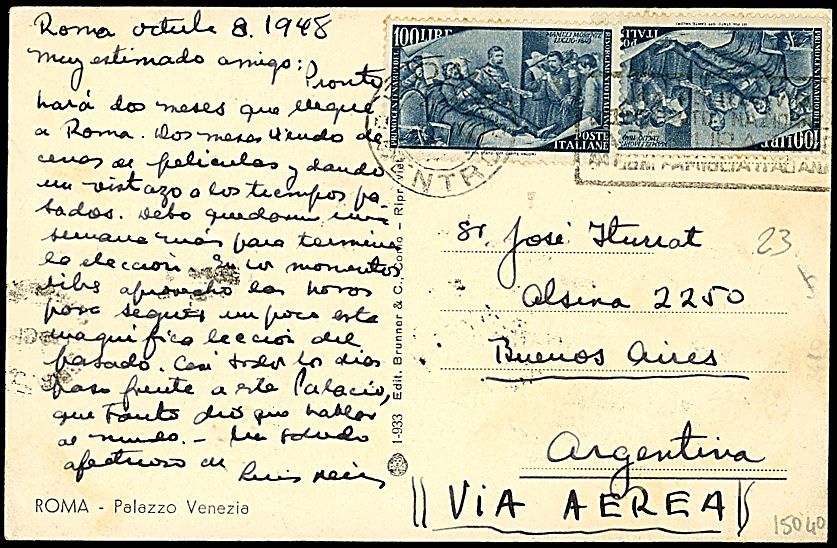 Roma octubre 8. 1948
Muy estimado amigo:
Pronto
hará dos meses que llegué
a Roma. Dos meses viendo de-
cenas de películas y dando
un vistazo a los tiempos pa-
sados. Debo quedarme una
semana más para terminar
la elección. En los momentos
libres aprovecho las horas
para seguir un poco esta
magnífica lección del
pasado. Casi todos los días
paso frente a este Palacio,
que tanto dió que hablar
al mundo. — Un saludo
afectuoso de Luis
ROMA - Palazzo Venezia
1-933 Edit. Brunner & C., Como - Ripr. Viet
100 LIRE
MAMELI MORENTE
LUGLIO-1849
RISORGIMENTO ITALIANO
PRIMO CENTENARIO DEL
POSTE
ITALIANE
100 LIRE
PRIMO CENTENARIO DEL
POSTE
ITALIANE
CENTRO
FAMIGLIA ITALIANA
Sr José Iturrat
23
Alsina 2250
Buenos Aires
Argentina
VIA AEREA
15040